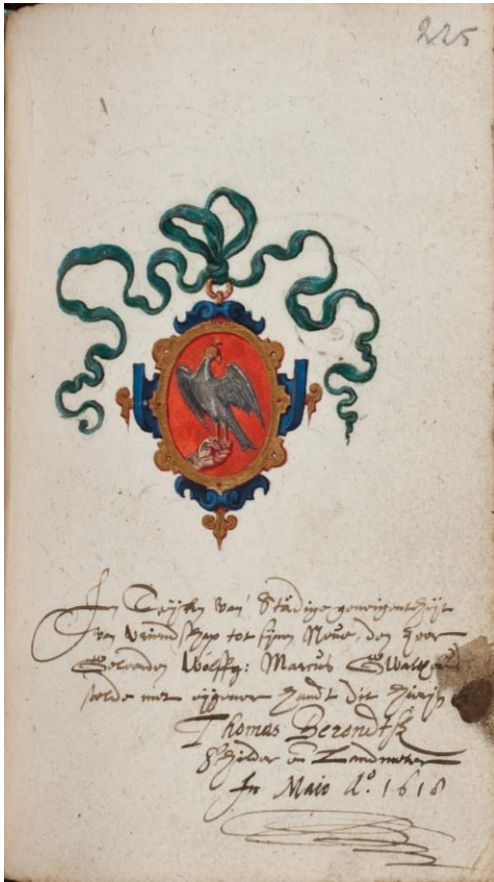 225
In Teijken van Stadige geneigentheijt
van vriendschap tot sijnen Neue, den heer
Geleerden Wolffg: Marcus Gwal
stelde met eijgener handt dit hierin
Thomas Berendtß
Schilder en Landmeter
In Maio Aº. 1618